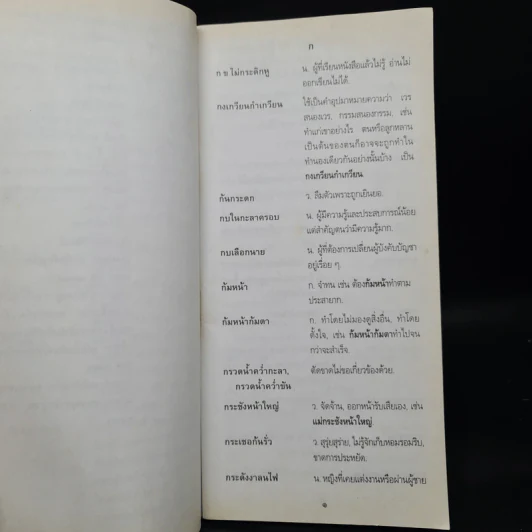 ก
ก ข ไม่กระดิกหู น. ผู้ที่เรียนหนังสือแล้วไม่รู้ อ่านไม่
ออกเขียนไม่ได้.
กงเกวียนกำเกวียน ใช้เป็นคำอุปมาหมายความว่า เวร
สนองเวร, กรรมสนองกรรม, เช่น
ทำแก่เขาอย่างไร ตนหรือลูกหลาน
เป็นต้นของตนก็อาจจะถูกทำใน
ทำนองเดียวกันอย่างนั้นบ้าง เป็น
กงเกวียนกำเกวียน.
กันกระดก ว. ลืมตัวเพราะถูกเยินยอ.
กบในกะลาครอบ น. ผู้มีความรู้และประสบการณ์น้อย
แต่สำคัญตนว่ามีความรู้มาก.
กบเลือกนาย น. ผู้ที่ต้องการเปลี่ยนผู้บังคับบัญชา
อยู่เรื่อย ๆ.
ก้มหน้า ก. จำทน เช่น ต้องก้มหน้าทำตาม
ประสายาก.
ก้มหน้าก้มตา ก. ทำโดยไม่มองดูสิ่งอื่น, ทำโดย
ตั้งใจ, เช่น ก้มหน้าก้มตาทำไปจน
กว่าจะสำเร็จ.
กรวดน้ำคว่ำกะลา, ตัดขาดไม่ขอเกี่ยวข้องด้วย.
กรวดน้ำคว่ำขัน
กระชังหน้าใหญ่ ว. จัดจ้าน, ออกหน้ารับเสียเอง, เช่น
แม่กระชังหน้าใหญ่.
กระเชอก้นรั่ว ว. สุรุ่ยสุร่าย, ไม่รู้จักเก็บหอมรอมริบ,
ขาดการประหยัด.
กระดังงาลนไฟ น. หญิงที่เคยแต่งงานหรือผ่านผู้ชาย